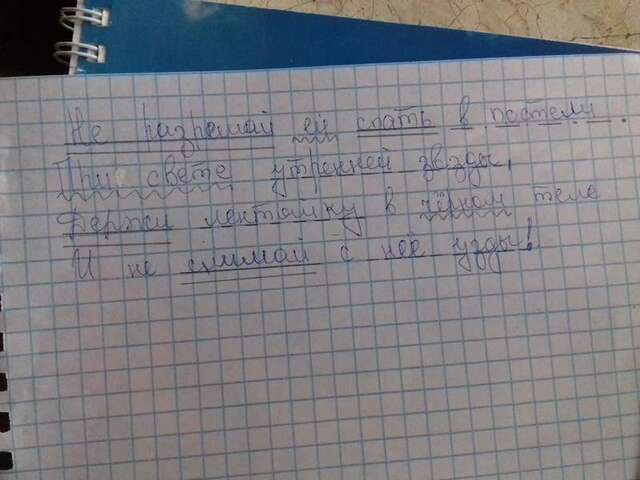 Не разрешай ей спать в постели
При свете утренней звезды,
Держи лентяйку в чёрном теле
И не снимай с неё узды!